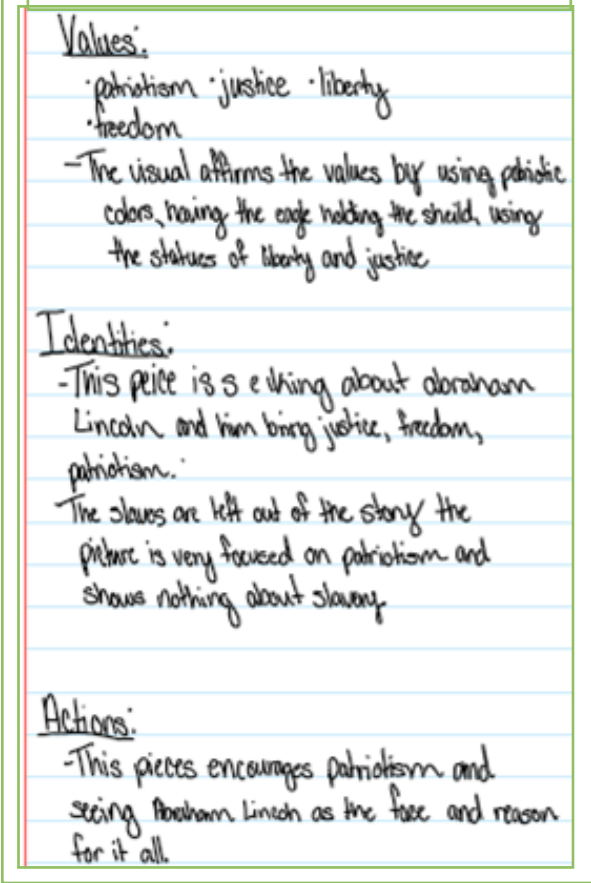 Values:
·patriotism ·justice ·liberty
·freedom
-The visual affirms the values by using patriotic
colors, having the eagle holding the sheild, using
the statues of liberty and justice
Identities:
-This peice is s e
about abraham
Lincoln and him bring justice, freedom,
patriotism.
-The slaves are left out of the story the
picture is very focused on patriotism and
shows nothing about slavery
Actions:
-This pieces encourages patriotism and
seeing Abraham Lincoln as the face and reason
for it all.